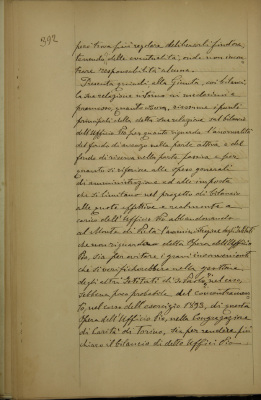 392
però trova più regolare deliberarli fin d'ora,
tenendo delle eventualità, onde non incon-
trare responsabilità alcuna.
Presenta quindi alla Giunta, coi bilanci
la sua relazione intorno ai medesimi e
premesso, quanto sovra, riassume i punti
principali della detta sua relazione sul bilancio
dell'Ufficio Pio per quanto riguarda l'anormalità
del fondo di avanzo nella parte attiva e del
fondo di riserva nella parte passiva e per
quanto si riferisce alle spese generali
di amministrazione ed alle imposte
che si limitano nel progetto di bilancio
alle quote effettive e realmente a
carico dell'Ufficio Pio abbandonando
al Monte di Pietà l'ammin
che non riguardano della Opera dell'Ufficio
Pio, sia per evitare i gravi inconvenienti
che si verificherebbero nella gestione
degli altri Istituti di S. Paolo, nel caso,
sebbene poco probabile, del concentramen-
to, nel corso dell'esercizio 1893, di questa
Opera dell'Ufficio Pio, nella Congregazione
di Carità di Torino, sia per rendere più
chiaro il bilancio di detto Ufficio Pio